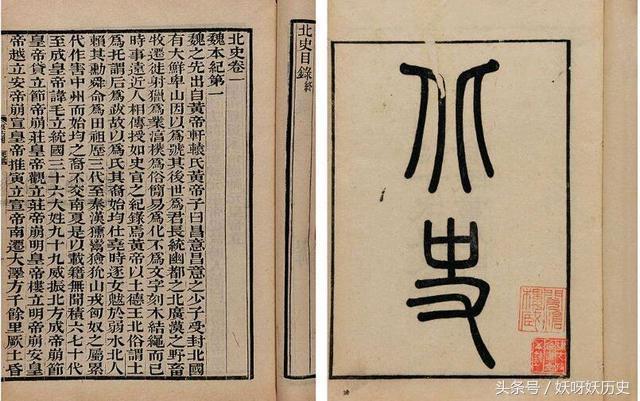 北史
北史目錄終
北史卷一
魏本紀第一
魏之先出自黃帝軒轅氏黃帝子曰昌意昌意之少子受封北國
有大鮮卑山因以為號其後世為君長統幽都之北廣漠之野畜
牧遷徙射獵為業淳樸為俗簡易為化不為文字刻木結繩而已
時事遠近人相傳授如史官之紀錄焉黃帝以土德王北俗謂土
為托謂后為跋故以為氏其裔始均仕堯時逐女魃於弱水北人
賴其勳舜命為田祖歷三代至秦漢獯鬻獫狁山戎匈奴之屬累
代作害中州而始均之裔不交南夏是以載籍無聞積六七十代
至成皇帝諱毛立統國三十六大姓九十九威振北方成帝崩節
皇帝貸立節帝崩莊皇帝觀立莊帝崩明皇帝樓立明帝崩安皇
帝越立安帝崩宣皇帝推寅立宣帝南遷大澤方千餘里厥土昏
头条号/妖呀妖历史